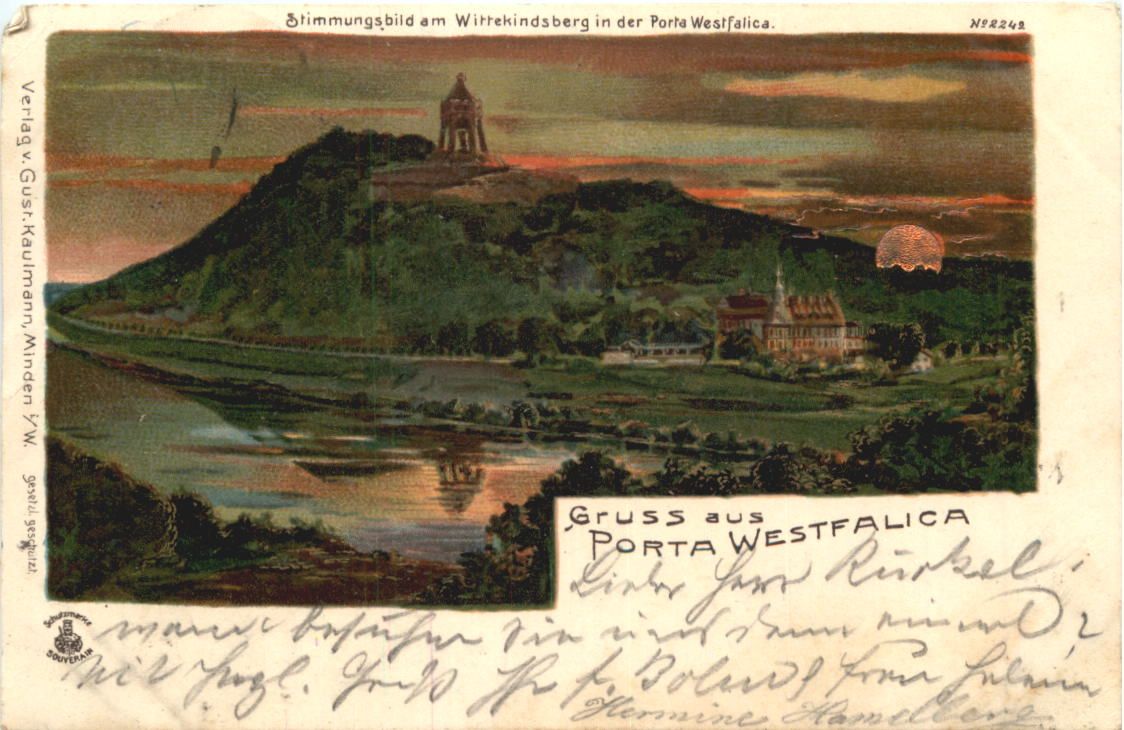 Stimmungsbild am Wittekindsberg in der Porta Westfalica.
No 2249
Verlag v. Gust. Kaulmann, Minden i/W. gesetzl. geschützt.
Gruss aus
Porta Westfalica
Lieber Herr Rückel,
wann besuchen Sie uns denn einmal?
Mit herzl. Gruß Ihr
Frau Helene
Hermine Hamelberg
Schutzmarke
SOUVERAIN